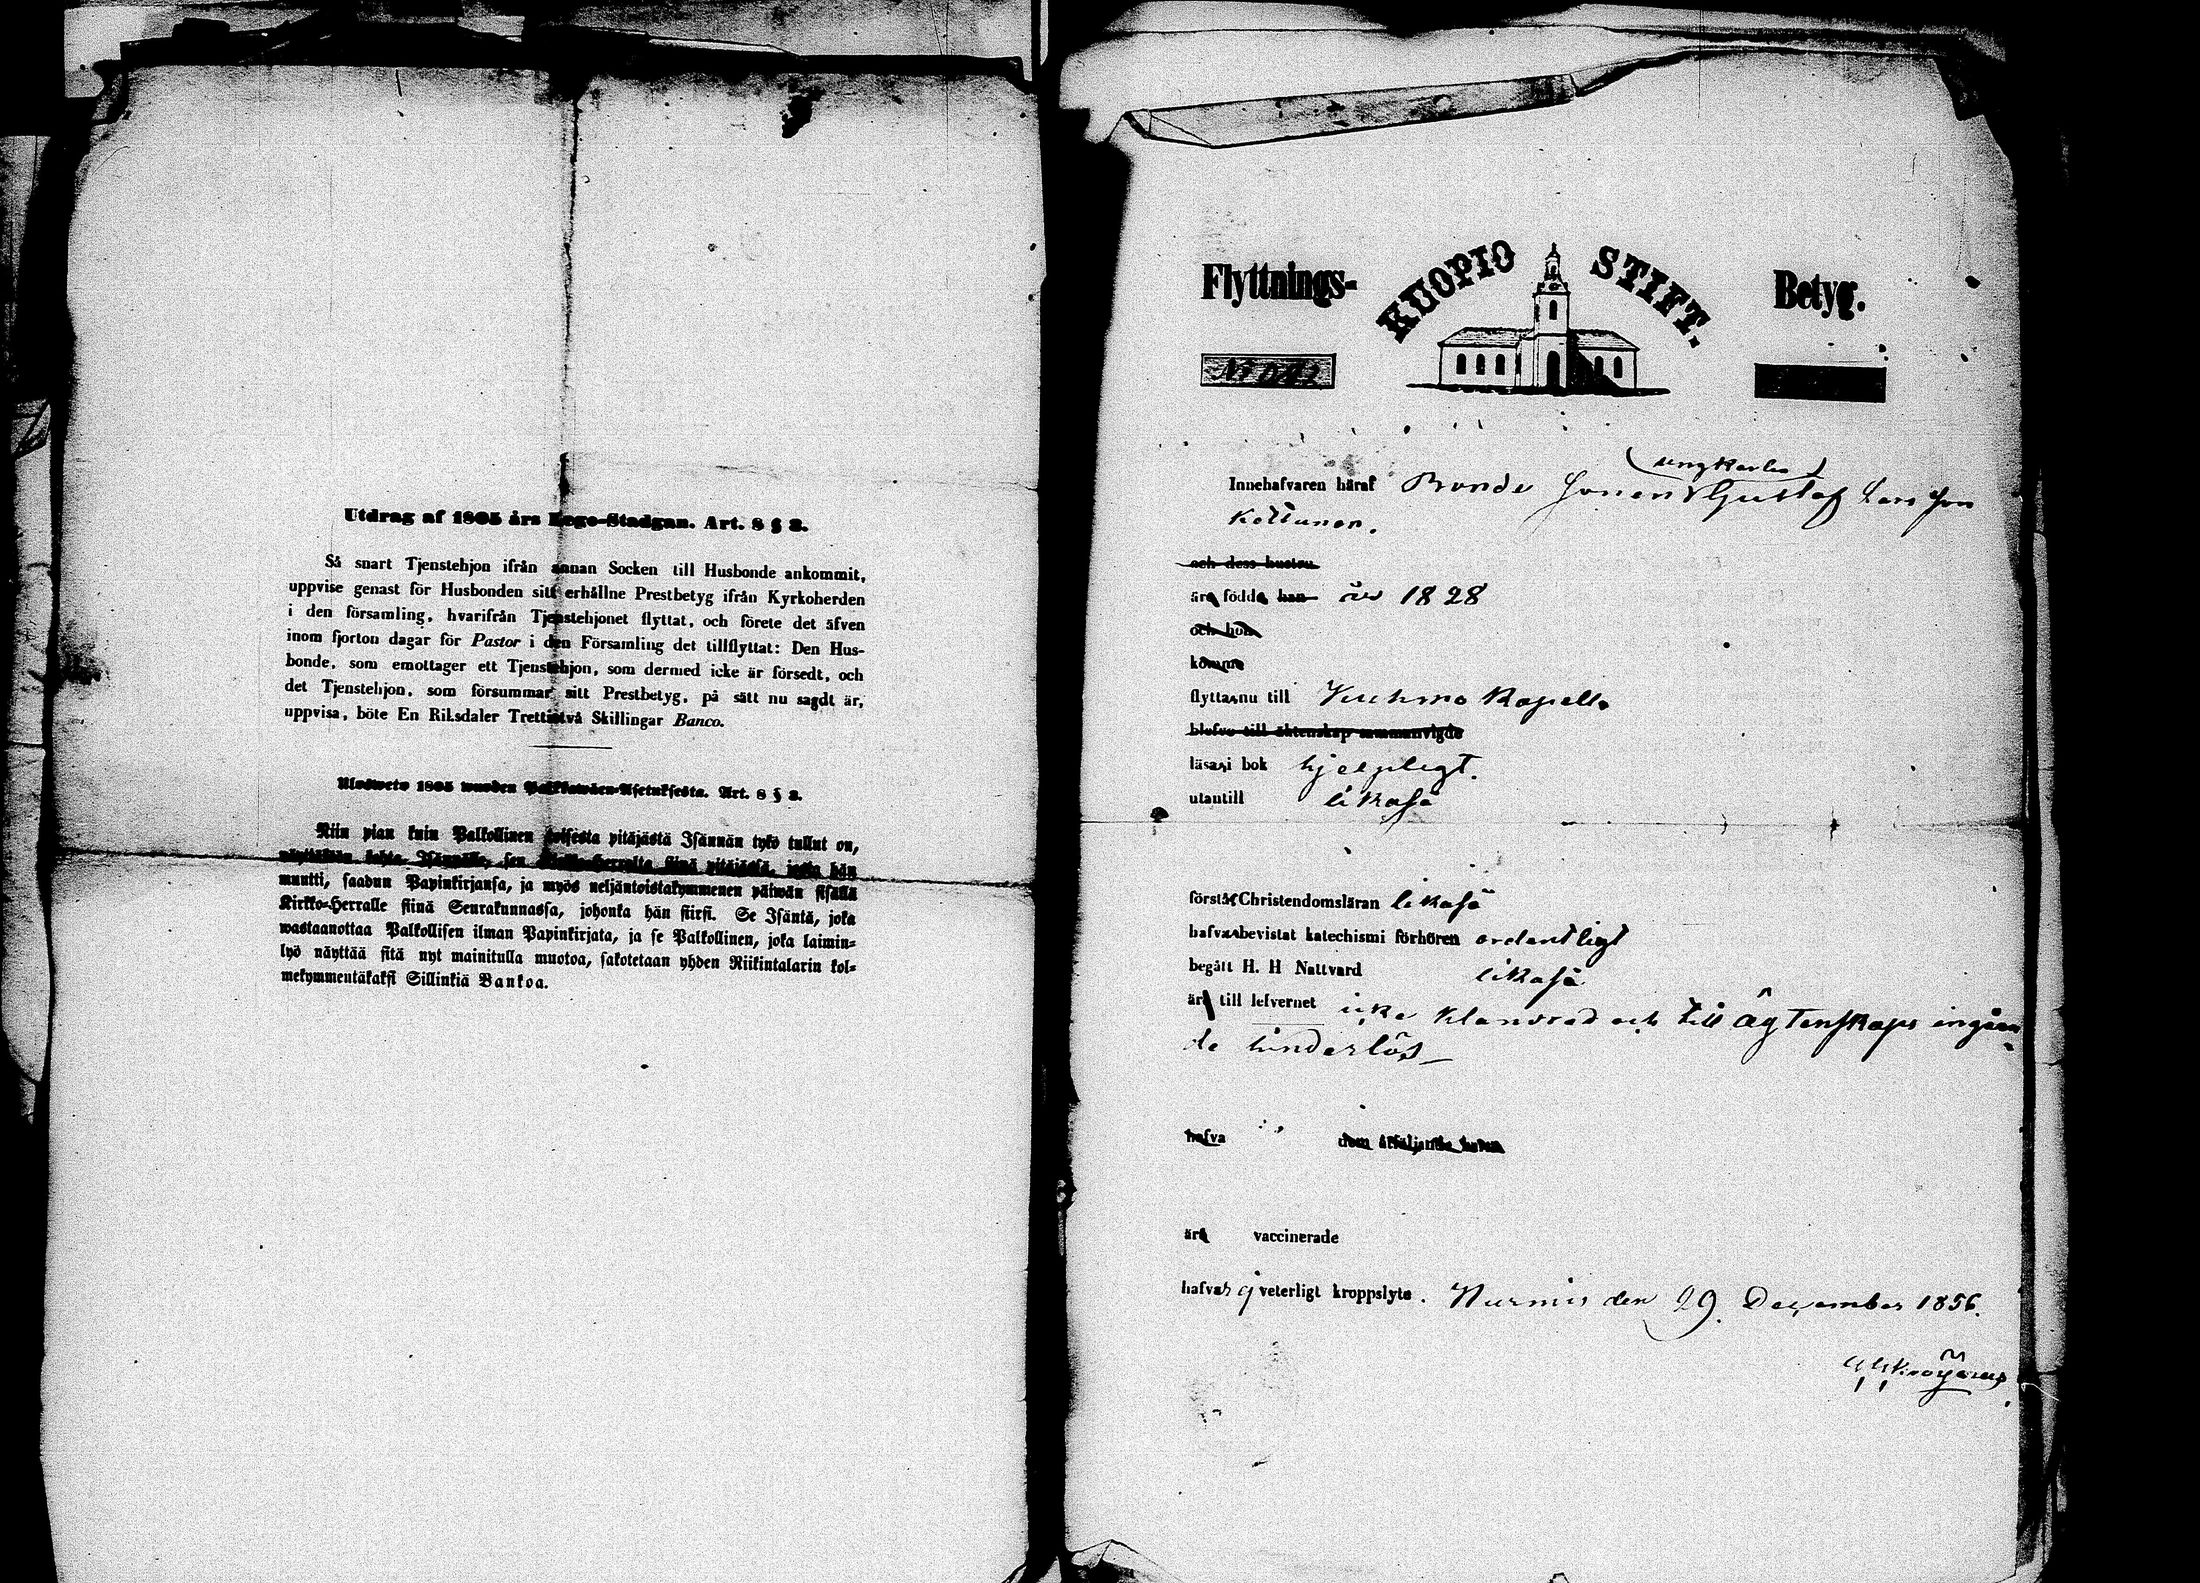 Utdrag af 1805 års Lego-Stadgan. Art. 8 § 3.
Så snart Tjenstehjon ifrån annan Socken till Husbonde ankommit,
uppvise genast för Husbonden sitt erhållne Prestbetyg ifrån Kyrkoherden
i den församling, hvarifrån Tjenstehjonet flyttat, och förete det äfven
inom fjorton dagar för Pastor i den Församling det tillflyttat: Den Hus-
bonde, som emottager ett Tjenstehjon, som dermed icke är försedt, och
det Tjenstehjon, som försummar sitt Prestbetyg, på sätt nu sagdt är,
uppvisa, böte En Riksdaler Trettiotvå Skillingar Banco.
Ulosweto 1805 wuoden Palkkawäen-Asetuksesta. Art. 8 § 3.
Niin pian kuin Palkollinen toisesta pitäjästä Isännän tykö tullut on,
näyttäkään kohta Isännälle, sen Kirkko-Herralta siinä pitäjässä, josta hän
muutti, saadun Papinkirjansa, ja myös neljäntoistakymmenen päiwän sisällä
Kirkko-Herralle siinä Seurakunnassa, johonka hän siirsi. Se Isäntä, joka
wastaanottaa Palkollisen ilman Papinkirjata, ja se Palkollinen, joka laimin-
lyö näyttää sitä nyt mainitulla muotoa, sakotetaan yhden Riikintalarin kol-
mekymmentäkaksi Sillinkiä Bankoa.
Flyttnings- KUOPIO STIFT. Betyg.
ungkarlen
Innehafvaren häraf Bonde Sonen Gustaf Lars Son
Kettunen.
och dess hustru
äro födde han år 1828
och hon
komme
flytta nu till Kuhmo Kapell
blefvo till äktenskap sammanvigde
läsa i bok hjelpligt.
utantill likaså
förstå Christendomsläran likaså
hafva bevistat katechismi förhören ordentligt
begått H. H Nattvard likaså
är till lefvernet icke klandrad och till ägtenskaps ingåen
de hinderlös
hafva dem åtföljande barn
är vaccinerade
hafva ej veterligt kroppslyte. Nurmis den 29. December 1856.